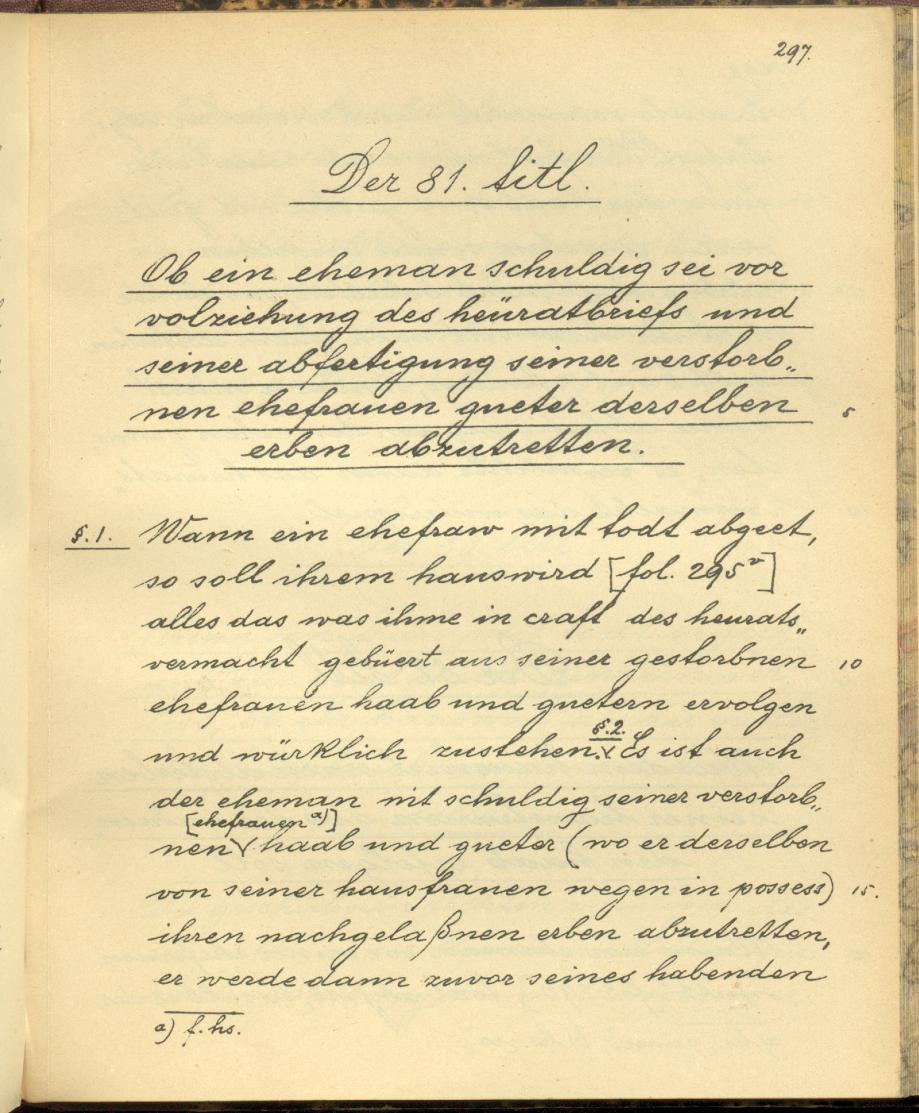 297.
Der 81. titl.
Ob ein eheman schuldig sei vor
volziehung des heüratbriefs und
seiner abfertigung seiner verstorb„
nen ehefrauen gueter derselben 5
erben abzutretten.
§.1. Wann ein ehefraw mit todt abgeet,
so soll ihrem hauswird [fol. 295v]
alles das was ihme in craft des heurats„
vermacht gebüert aus seiner gestorbnen 10
ehefrauen haab und guetern ervolgen
und würklich zustehen. §.2. Es ist auch
der eheman nit schuldig seiner verstorb„
nen [ehefrauen a)] haab und gueter (wo er derselben
von seiner hausfrauen wegen in possess) 15.
ihren nachgelaßnen erben abzutretten,
er werde dann zuvor seines habenden
a) f. hs.